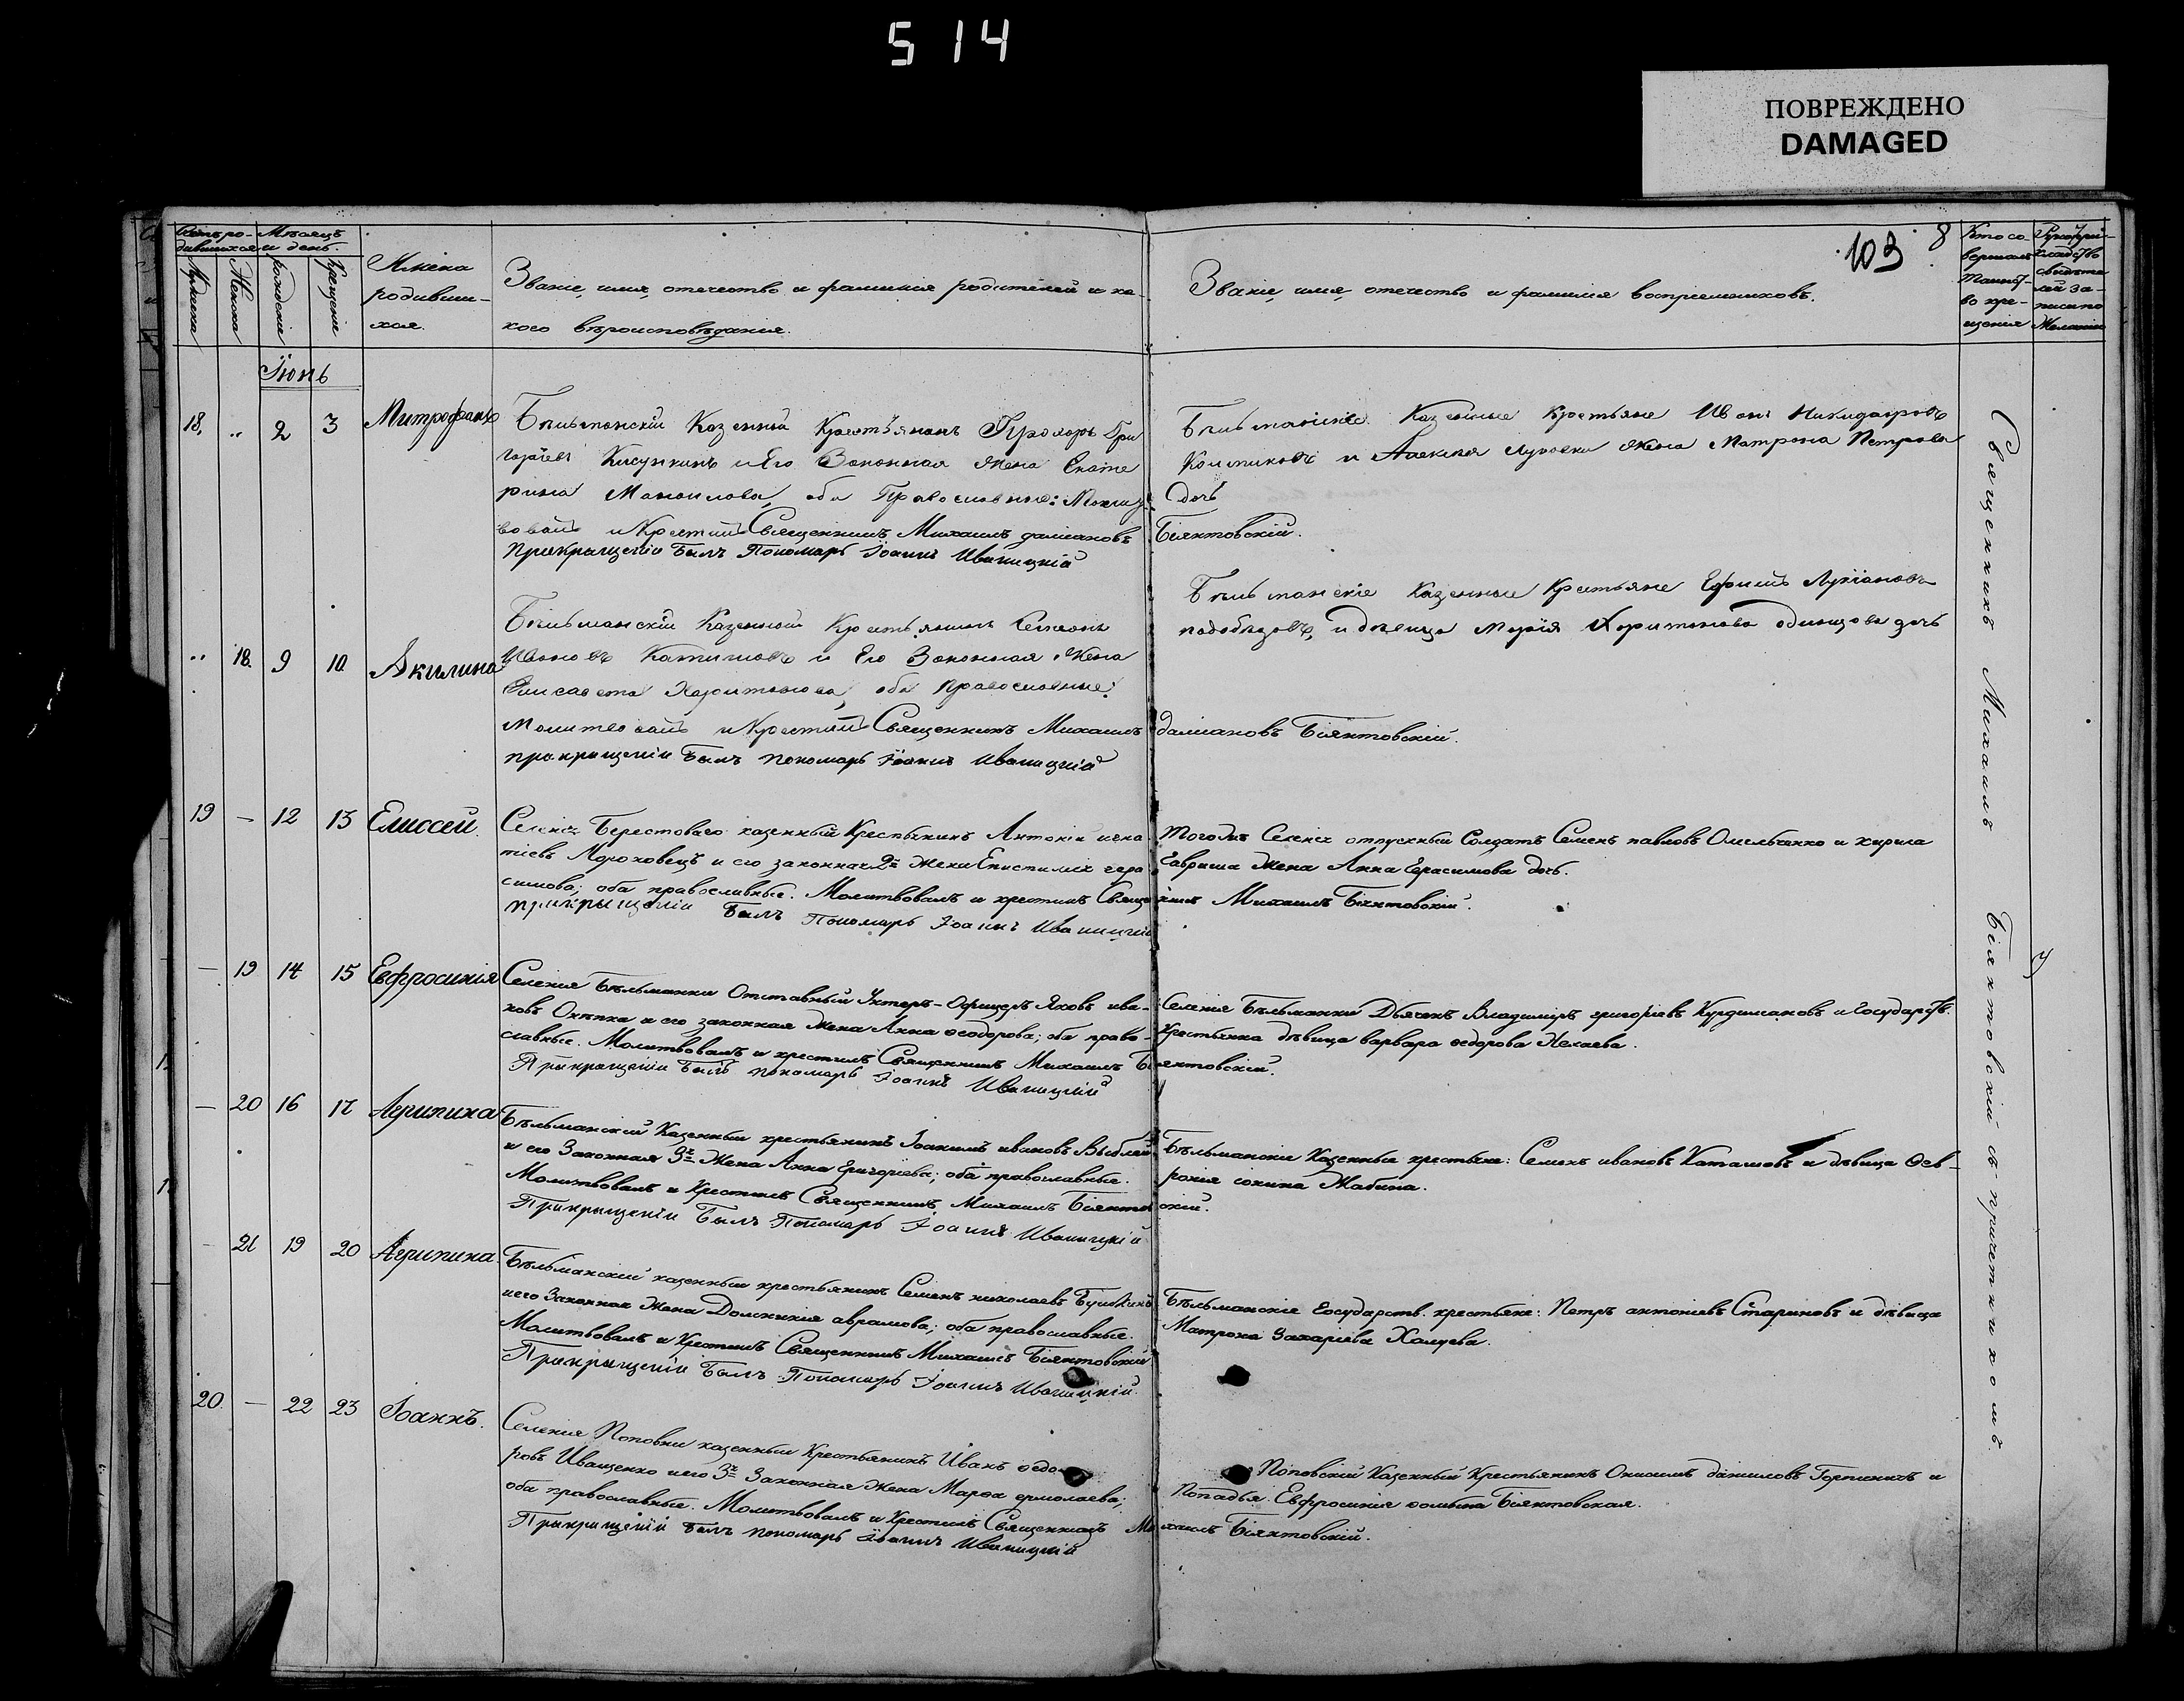 514
ПОВРЕЖДЕНО
DAMAGED
103
8
Мѣсяцъ и день.
Имена родивши-
хся.
Званіе, имя, отечество и фамилія родителей и ка-
кого вѣроисповѣданія.
Званіе, имя, отечество и фамилія воспріемниковъ.
Кто со-
вершалъ
таинст-
во кре-
щенія
Іюнь
18. „ 2 3 Митрофанъ
Бѣльманскій Казенный Крестьянинъ Прохоръ Гри
горіевъ и Его Законная Жена Екате
рина Мануилова, оба Православные: Молит
вовалъ и Крестилъ Священникъ Михаилъ даміановъ Біянтовскій.
Прикрыщеніи Былъ Пономарь Іоаннъ Иваницкій
Бѣльманскіе Казенные Крестьяне Иванъ Никифоровъ
и жена Матрона Петрова
дочь
„ 18. 9 10 Акилина
Бѣльманскій Казенный Крестьянинъ Семеонъ
Ивановъ Каташовъ и Его Законная Жена
Елисавета Харитонова, оба Православные:
Молитвовалъ и Крестилъ Священникъ Михаилъ даміановъ Біянтовскій.
прикрищеніи Былъ пономарь Іоаннъ Иваницкій
Бѣльманскіе Казенные Крестьяне Ефимъ Лукіановъ
подобѣдовъ, и дѣвица Марія Харитонова одинцова дочь
19 — 12 13 Елиссей.
Селенія Берестоваго казенный Крестьянинъ Антоній игна
тіевъ Мороховецъ и его законная 2я Жена Епистимія гера
симова; оба православные. Молитвовалъ и крестилъ Священникъ Михаилъ Біянтовскій.
прикрыщеніи Былъ Пономарь Іоаннъ Иваницкій
Тогожъ Селенія отпускный Солдатъ Семенъ павловъ Омельченко и кирила
Гавриша Жена Анна Герасимова дочь.
— 19 14 15 Евфросинія
Селенія Бѣльманки Отставный Унтеръ-Офицеръ Яковъ ива-
новъ и его законная Жена Анна Ѳеодорова; оба право-
славные. Молитвовалъ и крестилъ Священникъ Михаилъ Біянтовскій.
Прикрыщеніи Былъ пономарь Іоаннъ Иваницкій
Селенія Бѣльманки Дьячекъ Владиміръ григоріевъ Курдимановъ и Государств.
Крестьянка дѣвица варвара ѳедорова Нехаева.
— 20 16 17 Агрипина
Бѣльманскій Казенный крестьянинъ Іоакимъ ивановъ
и его Законная 3я Жена Анна Григоріева; оба православные.
Молитвовалъ и Крестилъ Священникъ Михаилъ Біянтовскій.
Прикрыщеніи Былъ Пономарь Іоаннъ Иваницкій
Бѣльманскіе Казенные крестьяне: Семенъ ивановъ Каташовъ и дѣвица Фев-
ронія іонина Жабина.
— 21 19 20 Агрипина.
Бѣльманскій казенный крестьянинъ Семенъ николаевъ
и его Законная Жена Домникія аврамова; оба православные.
Молитвовалъ и Крестилъ Священникъ Михаилъ Біянтовскій
Прикрыщеніи Былъ Пономарь Іоаннъ Иваницкій.
Бѣльманскіе Государств. крестьяне: Петръ антоніевъ Стариковъ и дѣвица
Матрона Захаріева Халуева.
20. — 22 23 Іоаннъ.
Селенія Поповки казенный Крестьянинъ Иванъ ѳедо-
ровъ Иващенко и его 3я Законная Жена Марѳа ермолаева;
оба православные. Молитвовалъ и Крестилъ Священникъ Михаилъ Біянтовскій.
Прикрищеніи Былъ пономарь Іоаннъ Иваницкій
Поповскій Казенный Крестьянинъ Онисимъ даниловъ и
Попадья Евфросинія Біянтовская.
Священникъ Михаилъ Біянтовскій съ причетникомъ.